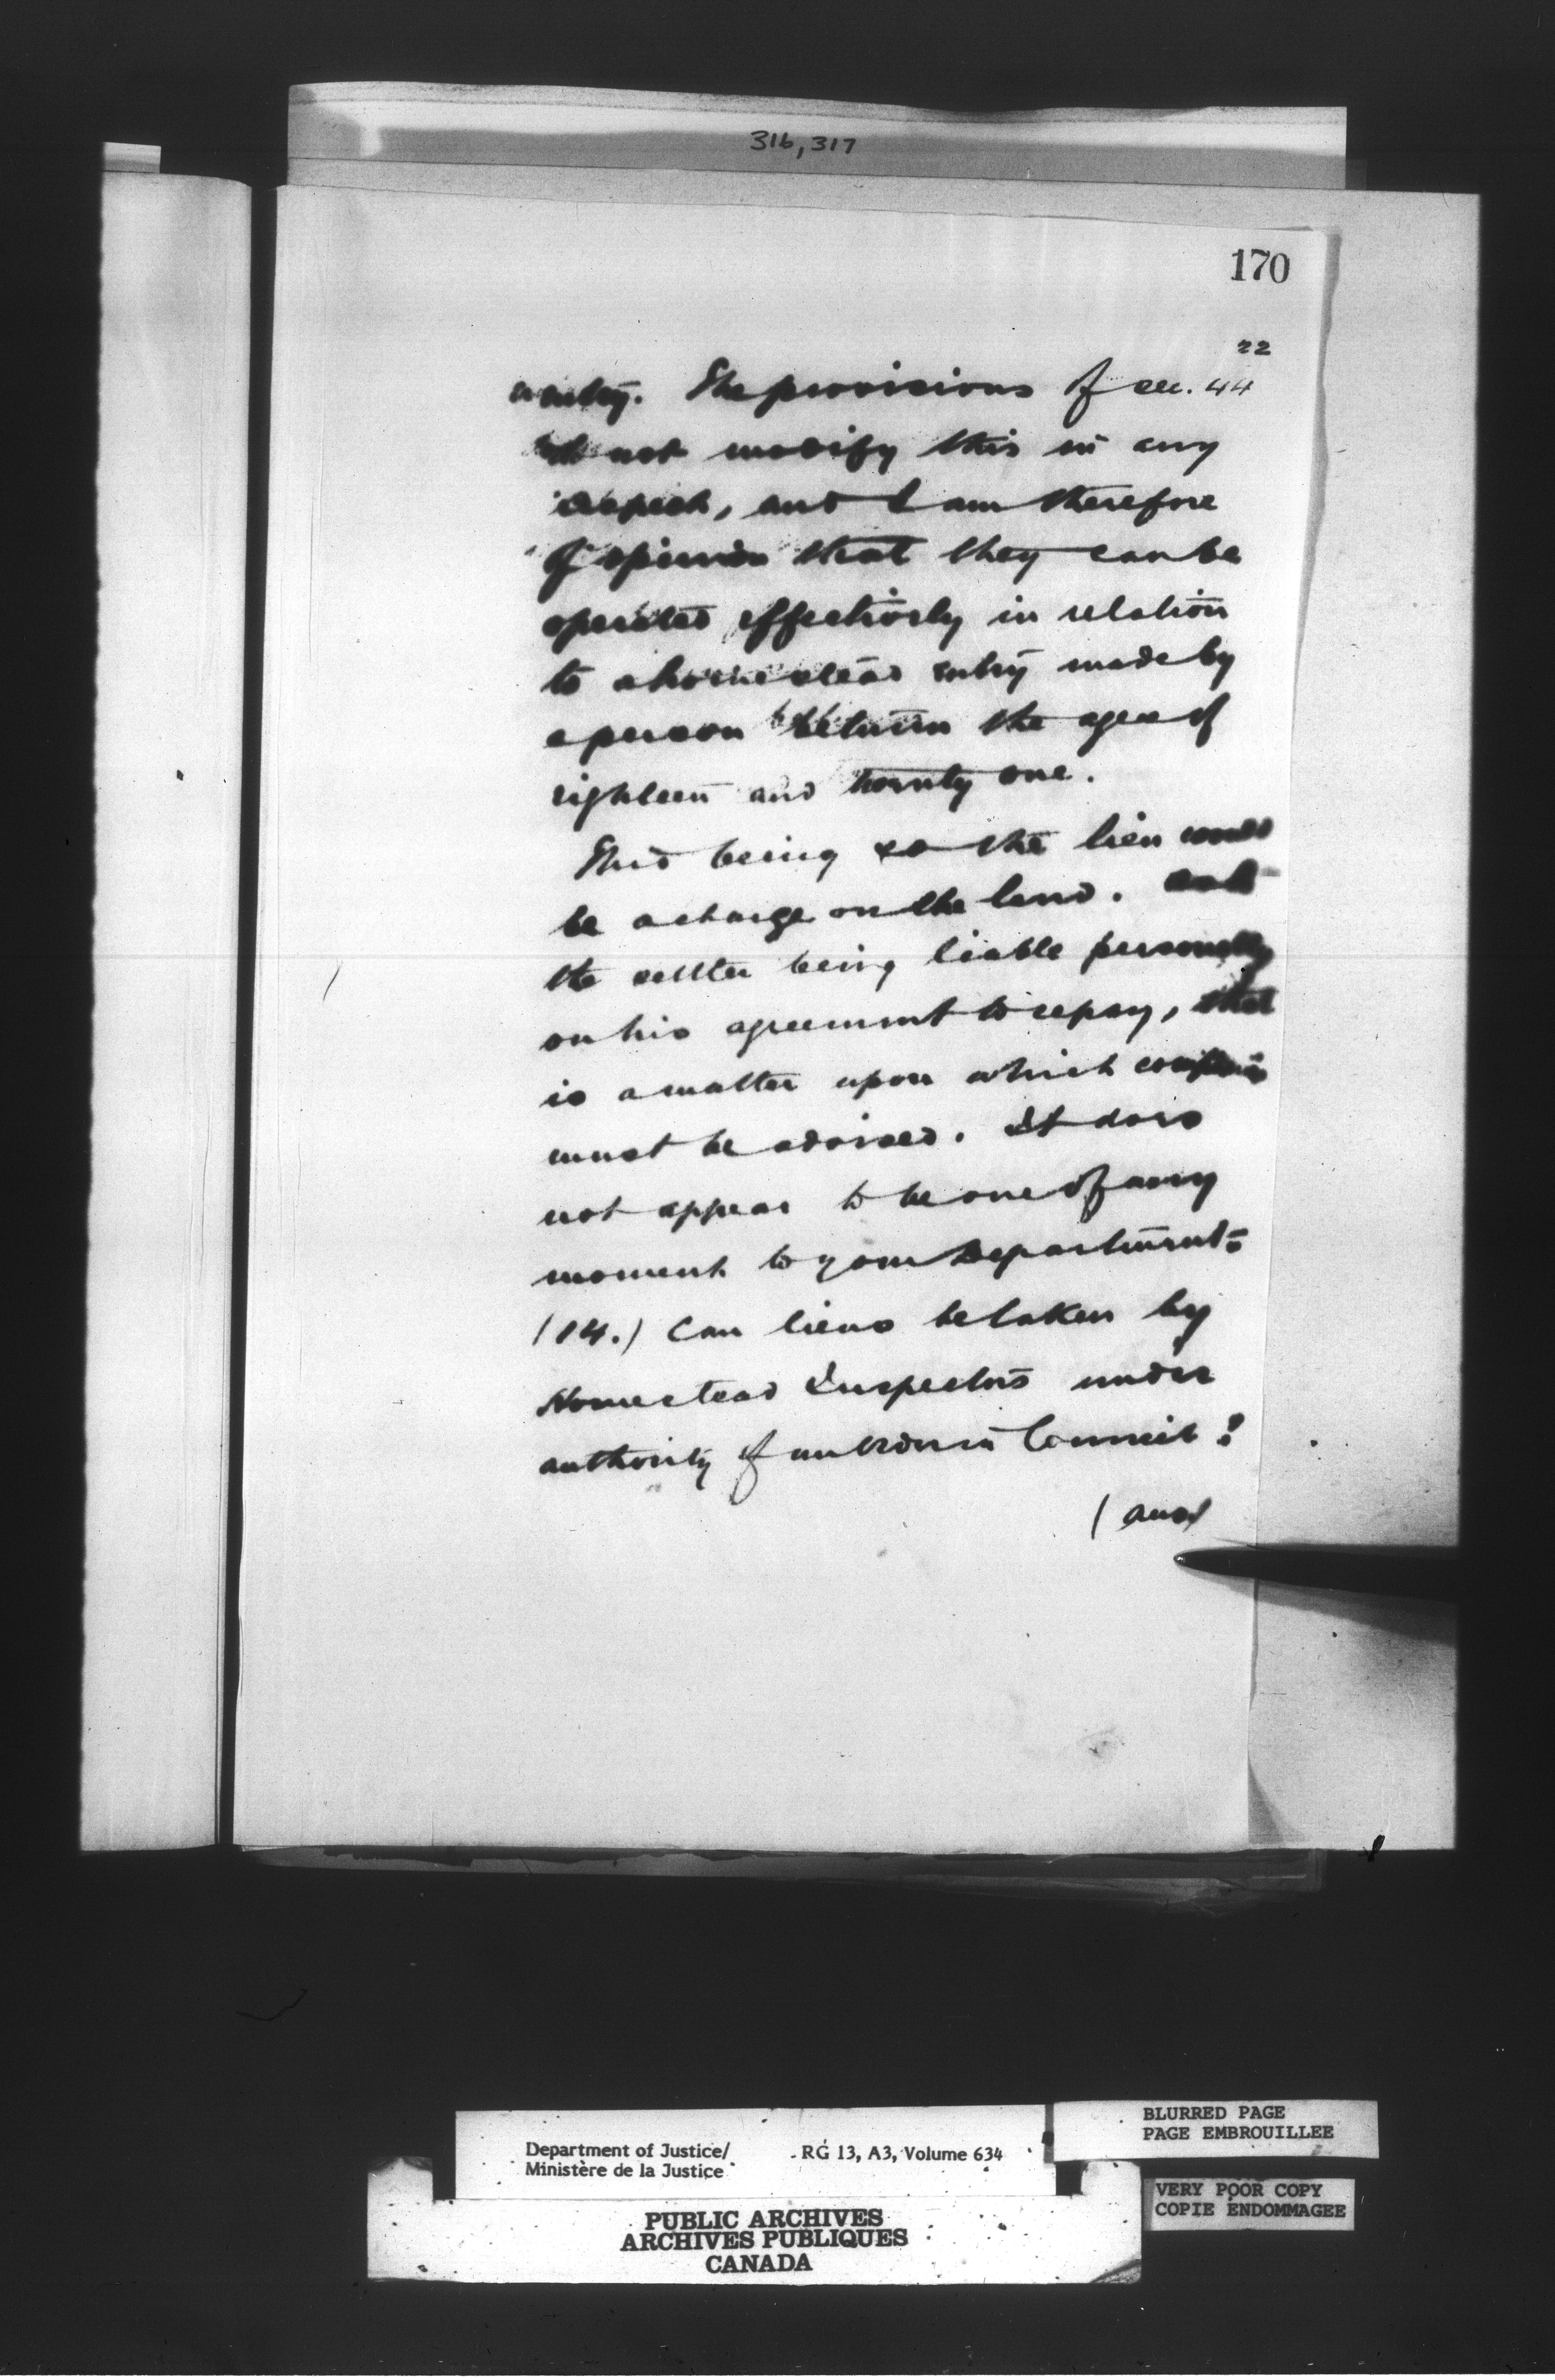 316, 317
170
22
entry. The provisions of sec. 44
do not modify this in any
respect, and I am therefore
of opinion that they can be
operated effectively in relation
to a homestead entry made by
a person between the ages of
eighteen and twenty one.
This being so the lien would
be a charge on the land. As to
the settler being liable personally
on his agreement to repay, that
is a matter upon which
must be advised. It does
not appear to be one of any
moment to your Department.
(14.) Can liens be taken by
Homestead Inspectors under
authority of an Order in Council?
Department of Justice/
Ministère de la Justice
RG 13, A3, Volume 634
BLURRED PAGE
PAGE EMBROUILLEE
VERY POOR COPY
COPIE ENDOMMAGEE
PUBLIC ARCHIVES
ARCHIVES PUBLIQUES
CANADA